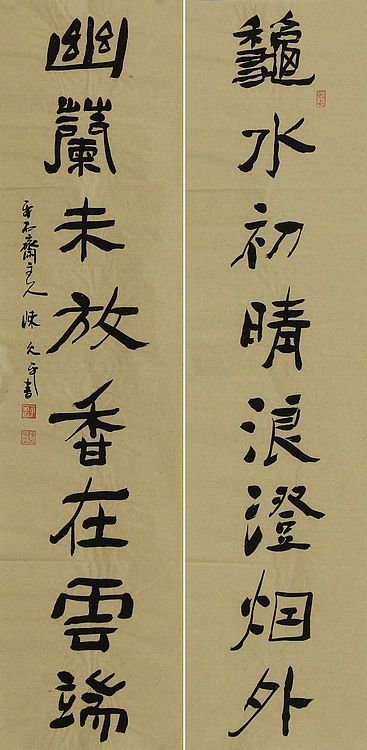 龝水初晴浪澄烟外
幽蘭未放香在雲端
齋主人陳書